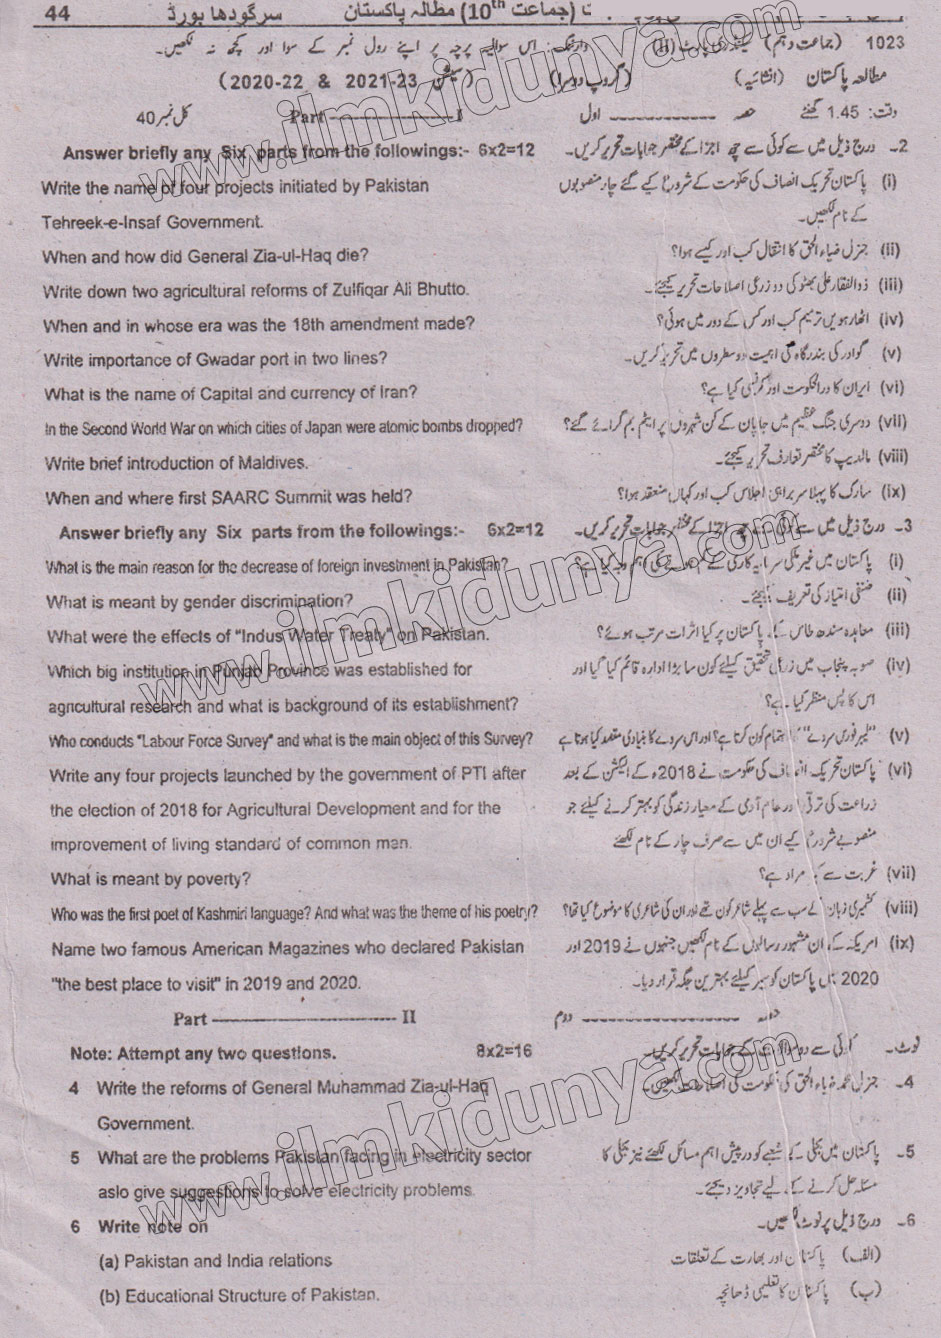 44 سرگودھا بورڈ مطالعہ پاکستان (جماعت 10th)
1023 (جماعت دہم) سیکنڈری پارٹ (II) وارننگ: اس سوالیہ پرچہ پر اپنے رول نمبر کے سوا اور کچھ نہ لکھیں۔
مطالعہ پاکستان (انشائیہ) (گروپ دوسرا) (سیشن 2021-23 & 2020-22)
وقت: 1.45 گھنٹے حصہ ------------ اول Part ----------------I کل نمبر 40
Answer briefly any Six parts from the followings:- 6x2=12 2۔ درج ذیل میں سے کوئی سے چھ اجزا کے مختصر جوابات تحریر کریں۔
Write the name of four projects initiated by Pakistan (i) پاکستان تحریک انصاف کی حکومت کے شروع کیے گئے چار منصوبوں
Tehreek-e-Insaf Government. کے نام لکھیں۔
When and how did General Zia-ul-Haq die? (ii) جنرل ضیاء الحق کا انتقال کب اور کیسے ہوا؟
Write down two agricultural reforms of Zulfiqar Ali Bhutto. (iii) ذوالفقار علی بھٹو کی دو زرعی اصلاحات تحریر کیجئے۔
When and in whose era was the 18th amendment made? (iv) اٹھارھویں ترمیم کب اور کس کے دور میں ہوئی؟
Write importance of Gwadar port in two lines? (v) گوادر کی بندرگاہ کی اہمیت دو سطروں میں تحریر کریں۔
What is the name of Capital and currency of Iran? (vi) ایران کا دارالحکومت اور کرنسی کیا ہے؟
In the Second World War on which cities of Japan were atomic bombs dropped? (vii) دوسری جنگ عظیم میں جاپان کے کن شہروں پر ایٹم بم گرائے گئے؟
Write brief introduction of Maldives. (viii) مالدیپ کا مختصر تعارف تحریر کیجئے۔
When and where first SAARC Summit was held? (ix) سارک کا پہلا سربراہی اجلاس کب اور کہاں منعقد ہوا؟
Answer briefly any Six parts from the followings:- 6x2=12 3۔ درج ذیل میں سے کوئی سے چھ اجزا کے مختصر جوابات تحریر کریں۔
What is the main reason for the decrease of foreign investment in Pakistan? (i) پاکستان میں غیر ملکی سرمایہ کاری کے کم ہونے کی اہم وجہ کیا ہے؟
What is meant by gender discrimination? (ii) صنفی امتیاز کی تعریف کیجئے۔
What were the effects of "Indus Water Treaty" on Pakistan. (iii) معاہدہ سندھ طاس کے پاکستان پر کیا اثرات مرتب ہوئے؟
Which big institution in Punjab Province was established for (iv) صوبہ پنجاب میں زرعی تحقیق کیلئے کون سا بڑا ادارہ قائم کیا گیا اور
agricultural research and what is background of its establishment? اس کا پس منظر کیا ہے؟
Who conducts "Labour Force Survey" and what is the main object of this Survey? (v) "لیبر فورس سروے" کا اہتمام کون کرتا ہے؟ اور اس سروے کا بنیادی مقصد کیا ہوتا ہے
Write any four projects launched by the government of PTI after (vi) پاکستان تحریک انصاف کی حکومت نے 2018ء کے الیکشن کے بعد
the election of 2018 for Agricultural Development and for the زراعت کی ترقی اور عام آدمی کے معیار زندگی کو بہتر کرنے کیلئے جو
improvement of living standard of common man. منصوبے شروع کیے ان میں سے صرف چار کے نام لکھئے
What is meant by poverty? (vii) غربت سے کیا مراد ہے؟
Who was the first poet of Kashmiri language? And what was the theme of his poetry? (viii) کشمیری زبان کے سب سے پہلے شاعر کون تھے اور ان کی شاعری کا موضوع کیا تھا؟
Name two famous American Magazines who declared Pakistan (ix) امریکہ کے ان مشہور رسالوں کے نام لکھیں جنہوں نے 2019 اور
"the best place to visit" in 2019 and 2020. 2020 میں پاکستان کو سیر کیلئے بہترین جگہ قرار دیا۔
Part ------------------------ II حصہ ------------------ دوم
Note: Attempt any two questions. 8x2=16 نوٹ۔ کوئی سے دو سوالات کے جوابات تحریر کریں۔
4 Write the reforms of General Muhammad Zia-ul-Haq 4۔ جنرل محمد ضیاء الحق کی حکومت کی اصلاحات لکھیں۔
Government.
5 What are the problems Pakistan facing in electricity sector 5۔ پاکستان میں بجلی کے شعبے کو درپیش اہم مسائل لکھئے نیز بجلی کا
aslo give suggestions to solve electricity problems. مسئلہ حل کرنے کے لیے تجاویز دیجئے۔
6 Write note on 6۔ درج ذیل پر نوٹ لکھیں۔
(a) Pakistan and India relations (الف) پاکستان اور بھارت کے تعلقات
(b) Educational Structure of Pakistan. (ب) پاکستان کا تعلیمی ڈھانچہ
www.ilmkidunya.com
www.ilmkidunya.com
www.ilmkidunya.com